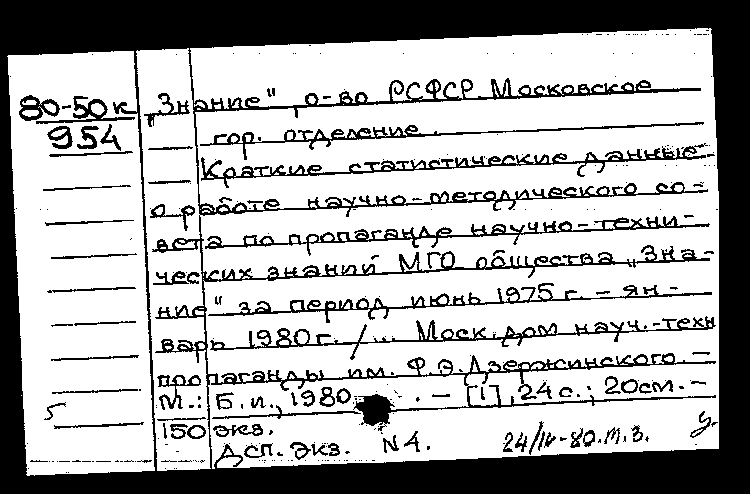 80-50к
954
„Знание", о-во РСФСР. Московское
гор. отделение.
Краткие статистические данные
о работе научно-методического со-
вета по пропаганде научно-техни-
ческих знаний МГО общества „Зна-
ние" за период июнь 1975 г. – ян-
варь 1980 г. / ... Моск. дом науч.-техн
пропаганды им. Ф.Э. Дзержинского. –
М.: Б.и., 1980. – [1], 24 с.; 20 см. –
5
150 экз.
Дсп. Экз. N 4.
24/IV-80.